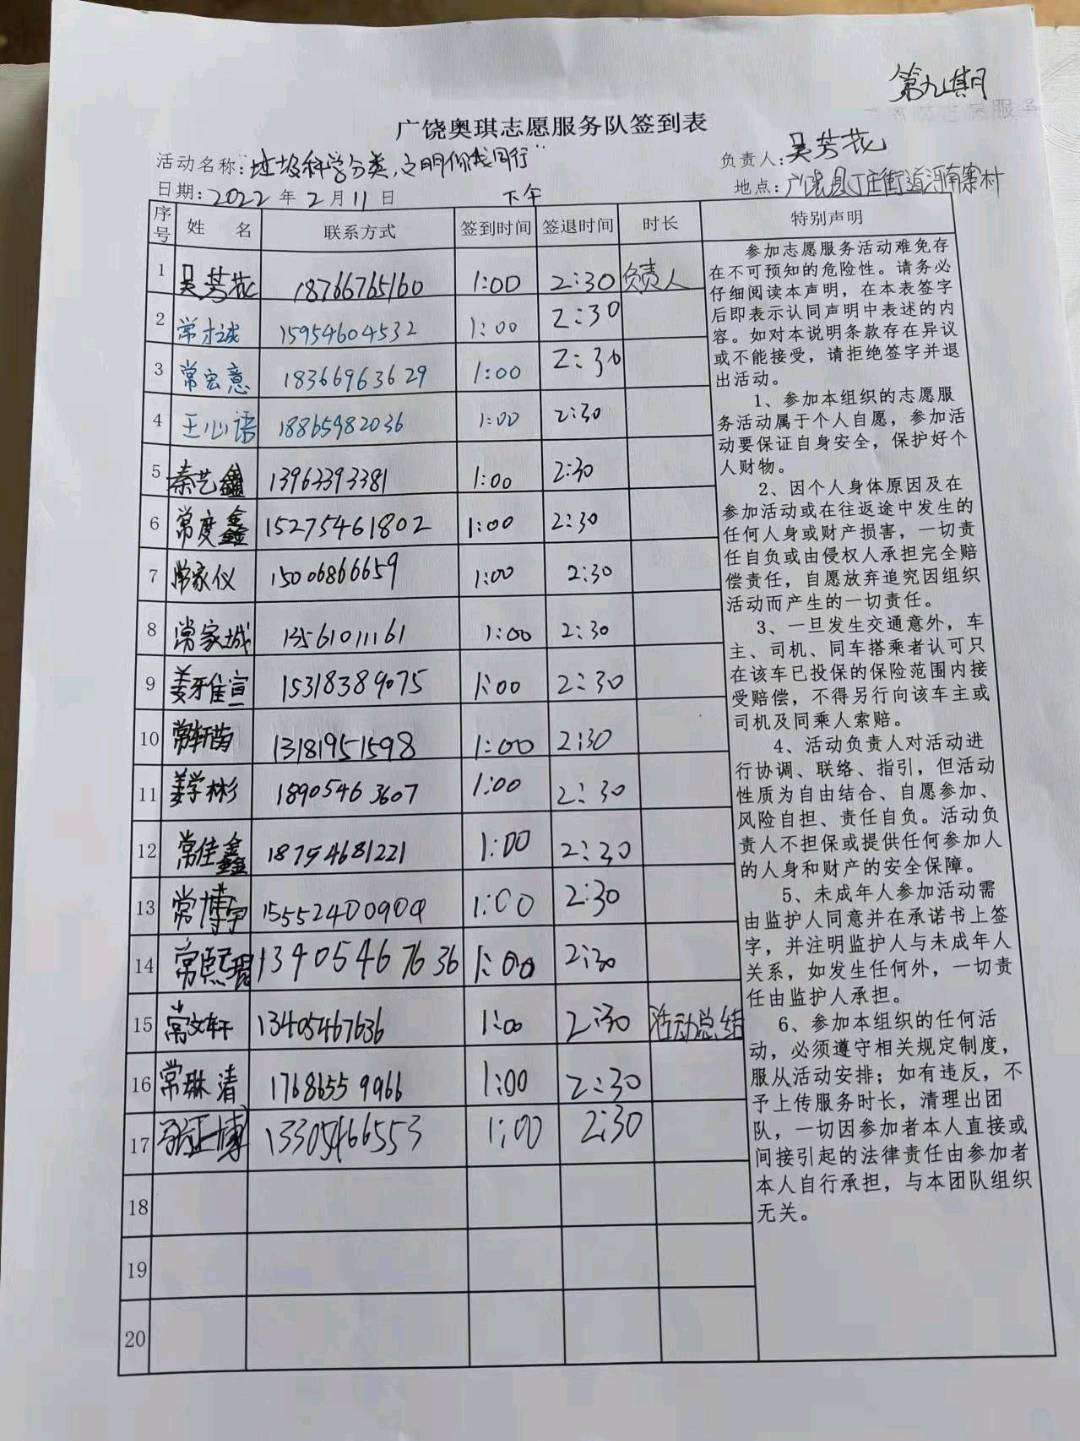 第九期
广饶奥琪志愿服务队签到表
活动名称："垃圾科学分类，文明你我同行" 负责人：吴芳花
日期：2022年2月11日 下午 地点：广饶县丁庄街道河南寨村
序号 姓名 联系方式 签到时间 签退时间 时长 特别声明
1 吴芳花 18766765160 1:00 2:30 负责人
2 常才诚 15954604532 1:00 2:30
3 常宏意 18366963629 1:00 2:30
4 王心语 18865982036 1:00 2:30
5 秦艺鑫 13963393381 1:00 2:30
6 常度鑫 15275461802 1:00 2:30
7 常家仪 15006866659 1:00 2:30
8 常家城 13561011161 1:00 2:30
9 姜雅宣 15318389075 1:00 2:30
10 13181951598 1:00 2:30
11 姜学彬 18905463607 1:00 2:30
12 常佳鑫 18754681221 1:00 2:30
13 常博宇 15552400909 1:00 2:30
14 常熙 13405467636 1:00 2:30
15 常文轩 13405467636 1:00 2:30 活动总结
16 常琳清 17686559966 1:00 2:30
17 13305466553 1:00 2:30
18
19
20
参加志愿服务活动难免存
在不可预知的危险性。请务必
仔细阅读本声明，在本表签字
后即表示认同声明中表述的内
容。如对本说明条款存在异议
或不能接受，请拒绝签字并退
出活动。
1、参加本组织的志愿服
务活动属于个人自愿，参加活
动要保证自身安全，保护好个
人财物。
2、因个人身体原因及在
参加活动或在往返途中发生的
任何人身或财产损害，一切责
任自负或由侵权人承担完全赔
偿责任，自愿放弃追究因组织
活动而产生的一切责任。
3、一旦发生交通意外，车
主、司机、同车搭乘者认可只
在该车已投保的保险范围内接
受赔偿，不得另行向该车主或
司机及同乘人索赔。
4、活动负责人对活动进
行协调、联络、指引，但活动
性质为自由结合、自愿参加、
风险自担、责任自负。活动负
责人不担保或提供任何参加人
的人身和财产的安全保障。
5、未成年人参加活动需
由监护人同意并在承诺书上签
字，并注明监护人与未成年人
关系，如发生任何外，一切责
任由监护人承担。
6、参加本组织的任何活
动，必须遵守相关规定制度，
服从活动安排；如有违反，不
予上传服务时长，清理出团
队，一切因参加者本人直接或
间接引起的法律责任由参加者
本人自行承担，与本团队组织
无关。